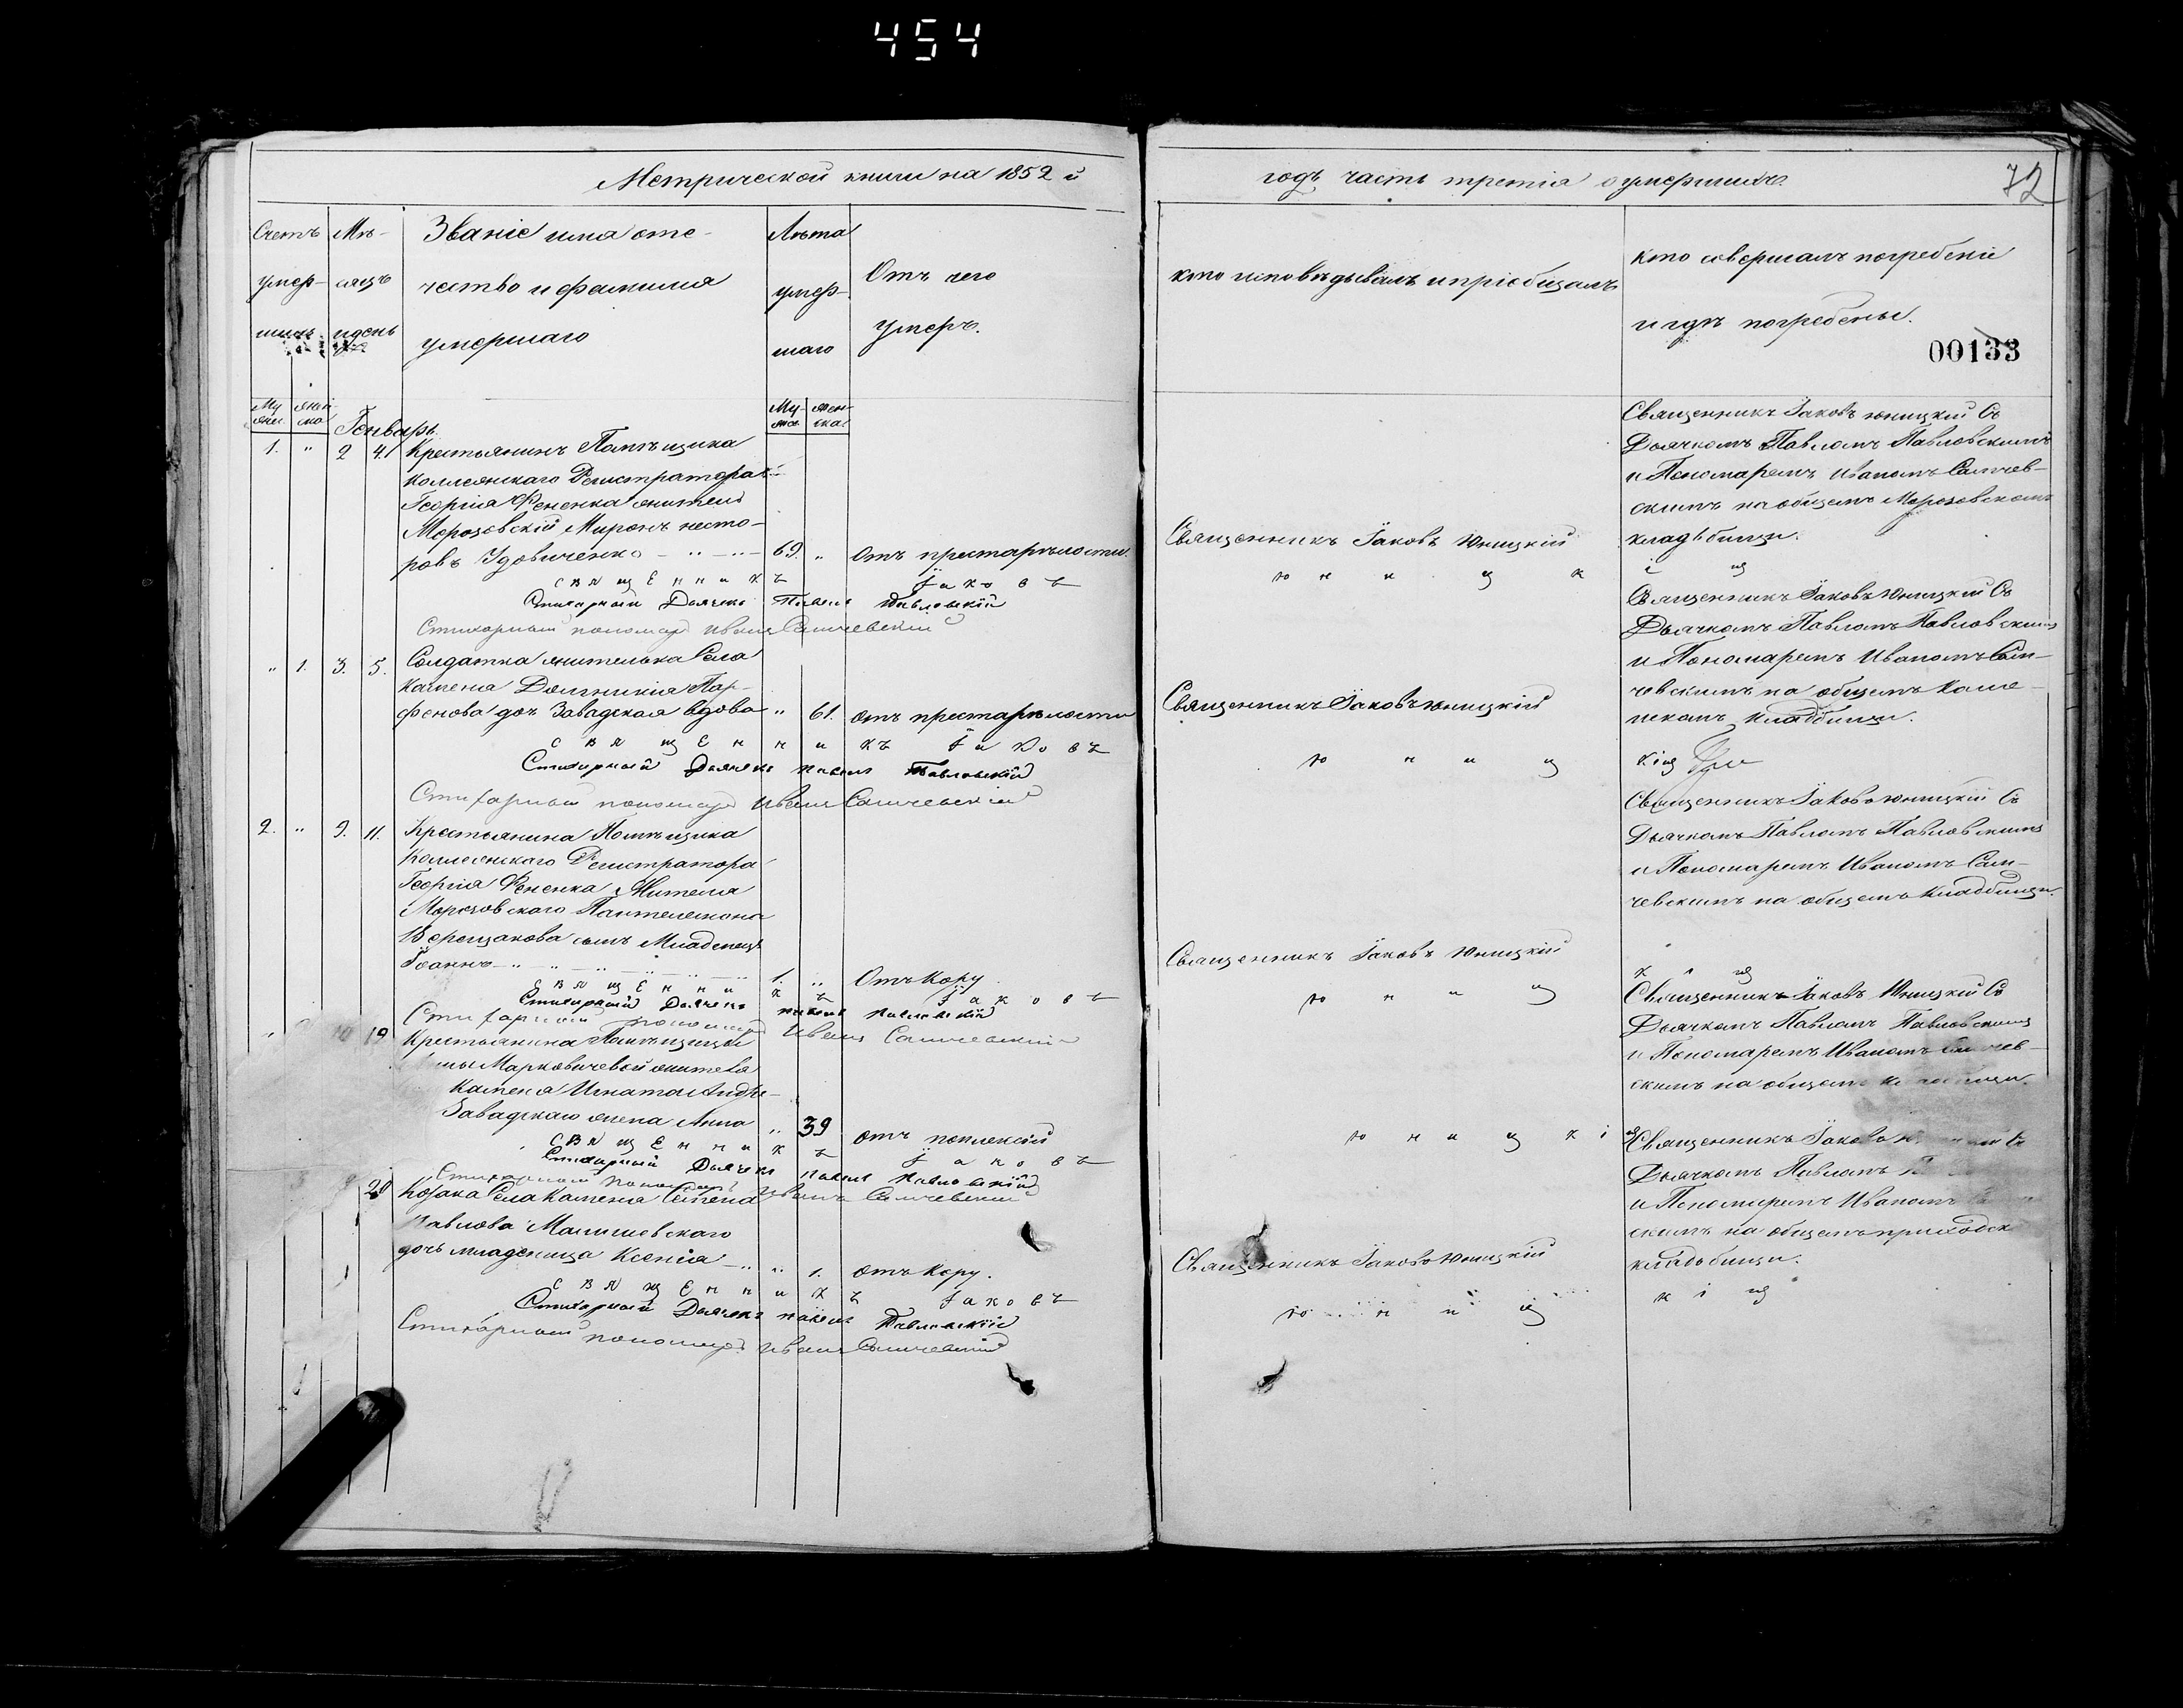 454
Метрической книги на 1852 й
годъ часть третія о умершихъ.
72
Счетъ умер- шихъ
Мѣ- сяцъ и день
Званіе имя оте-
чество и фамилия
умершаго
Лѣта умер- шаго
Отъ чего
умеръ.
кто исповѣдывалъ и пріобщалъ
кто совершалъ погребеніе
и гдѣ погребены.
00133
Му жес. женска
Генварь.
Му- жес. жен- ска
1. " 2 4. Крестьянинъ Помѣщика
Коллежскаго Регистратора
Георгія Фененка житель
Морозовскій Миронъ несто-
ровъ Удовиченко 69. " Отъ престарѣлости
Священникъ Іаковъ
Стихарный Дьячекъ Павелъ Павловскій
Стихарный пономарь Иванъ Самчевский
Священникъ Іаковъ Юницкій
юницкій
Священникъ Іаковъ юницкій Съ
Дьячкомъ Павломъ Павловскимъ
и Пономаремъ Иваномъ Самчев-
скимъ на общемъ Морозовскомъ
кладбищи.
" 1. 3. 5. Солдатка жителька Села
Каменя Домникія Пар-
фенова доч Завадская вдова " 61. отъ престарѣлости
Священникъ Іаковъ
Стихарный Дьячекъ Павелъ Павловскій
Стихарный пономарь Иванъ Самчевскій
Священникъ Іаковъ юницкій
юницкій
Священникъ Іаковъ Юницкій Съ
Дьячкомъ Павломъ Павловскимъ
и Пономаремъ Иваномъ Сам-
чевскимъ на общемъ Каме-
нскомъ кладбищи.
2. " 9. 11. Крестьянина Помѣщика
Коллежскаго Регистратора
Георгія Фененка Жителя
Морозовскаго Пантелемона
Верещакова сынъ Младенецъ
Іоаннъ 1. " Отъ Кору
Священникъ Іаковъ
Стихарный Дьячекъ Павелъ Павловскій
Стихарный пономарь Иванъ Самчевский
Священникъ Іаковъ Юницкій
юницкій
Священникъ Іаковъ юницкій Съ
Дьячкомъ Павломъ Павловскимъ
и Пономаремъ Иваномъ Сам-
чевскимъ на общемъ Кладбищи.
" 10 19 Крестьянина Помѣщицы
Марковичевой жителя
Каменя Игната Андре-
Завадскаго жена Анна " 39 отъ поплексій
Священникъ Іаковъ
Стихарный Дьячекъ Павелъ Павловскій
Стихарный пономарь Иванъ Самчевский
юницкій
Священникъ Іаковъ Юницкій Съ
Дьячкомъ Павломъ Павловскимъ
и Пономаремъ Иваномъ Самчев-
скимъ на общемъ кладбищи.
20 Козака Села Каменя Семена
Павлова Малишевскаго
дочь младеница Ксенія " 1. отъ Кору.
Священникъ Іаковъ
Стихарный Дьячекъ Павелъ Павловскій
Стихарный пономарь Иванъ Самчевский
Священникъ Іаковъ Юницкій
юницкій
Священникъ Іаковъ
Дьячкомъ Павломъ
и Пономаремъ Иваномъ
скимъ на общемъ приходск
кладбищи.